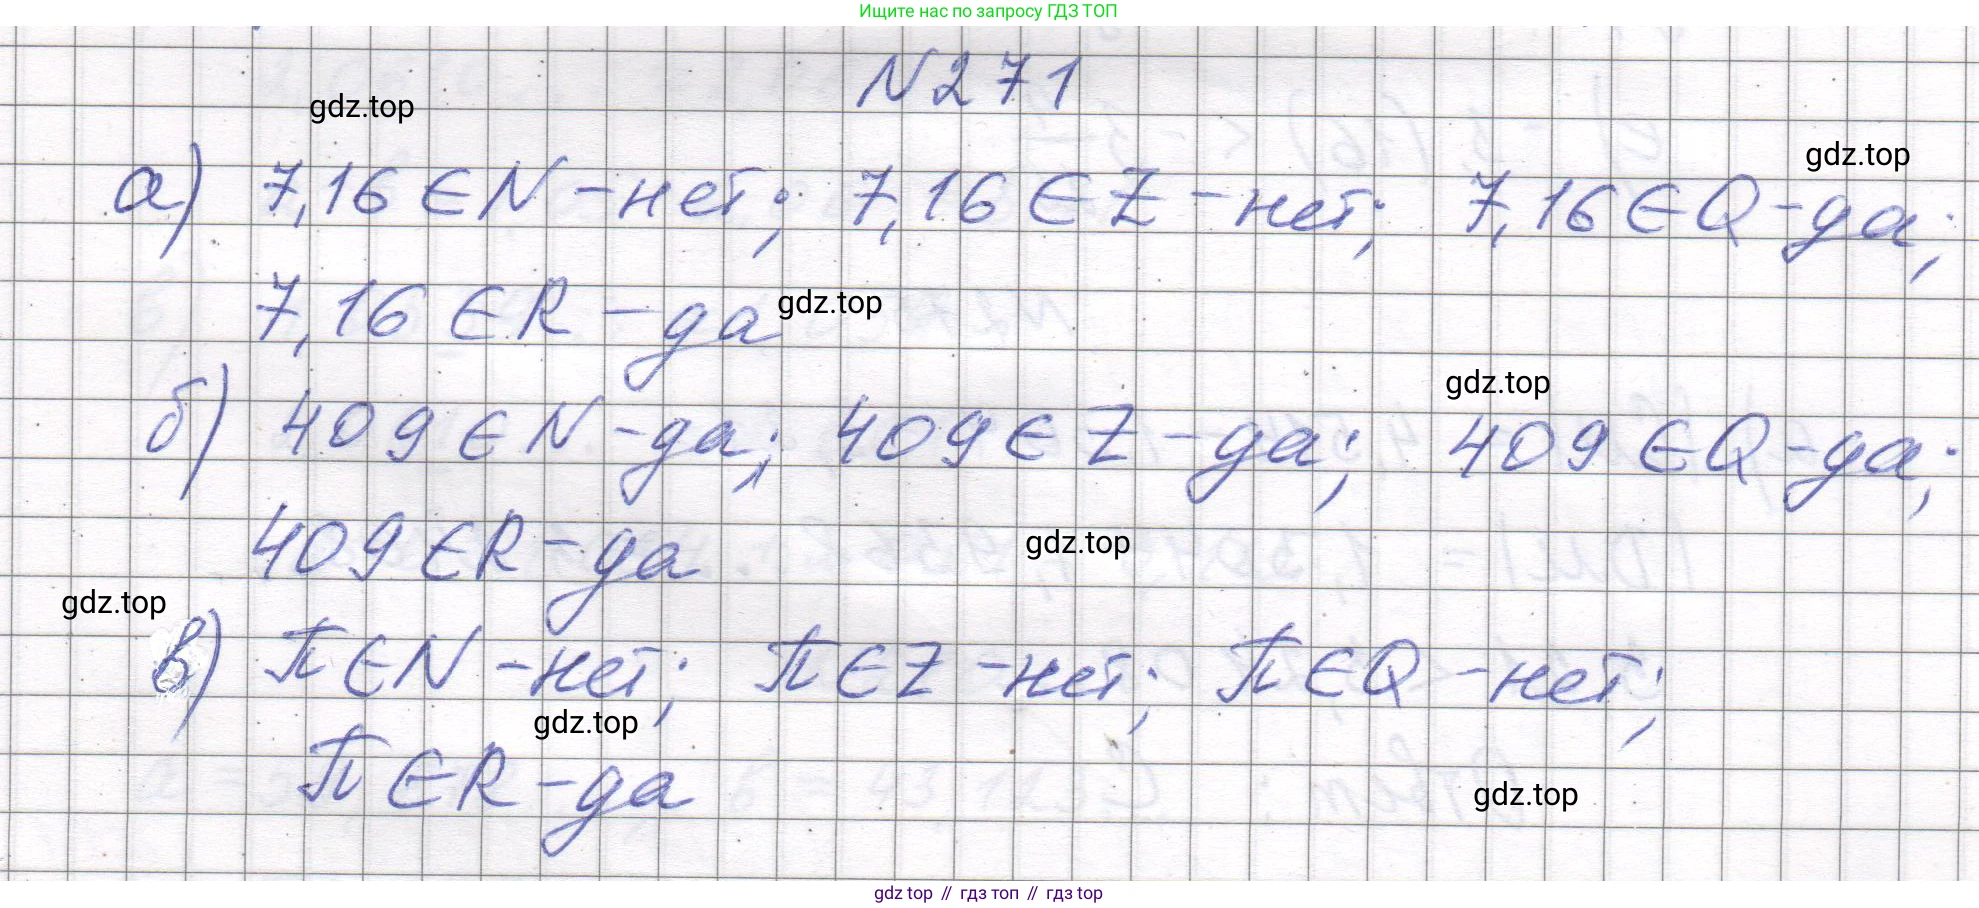 Ищите нас по запросу ГДЗ ТОП
N271
gdz.top
gdz.top
а) 7,16 ∈ N - нет; 7,16 ∈ Z - нет; 7,16 ∈ Q - да;
7,16 ∈ R - да
gdz.top
gdz.top
б) 409 ∈ N - да; 409 ∈ Z - да; 409 ∈ Q - да;
409 ∈ R - да
gdz.top
gdz.top
в) π ∈ N - нет; π ∈ Z - нет; π ∈ Q - нет;
gdz.top
π ∈ R - да
gdz.top
gdz top // гдз топ // гдз top